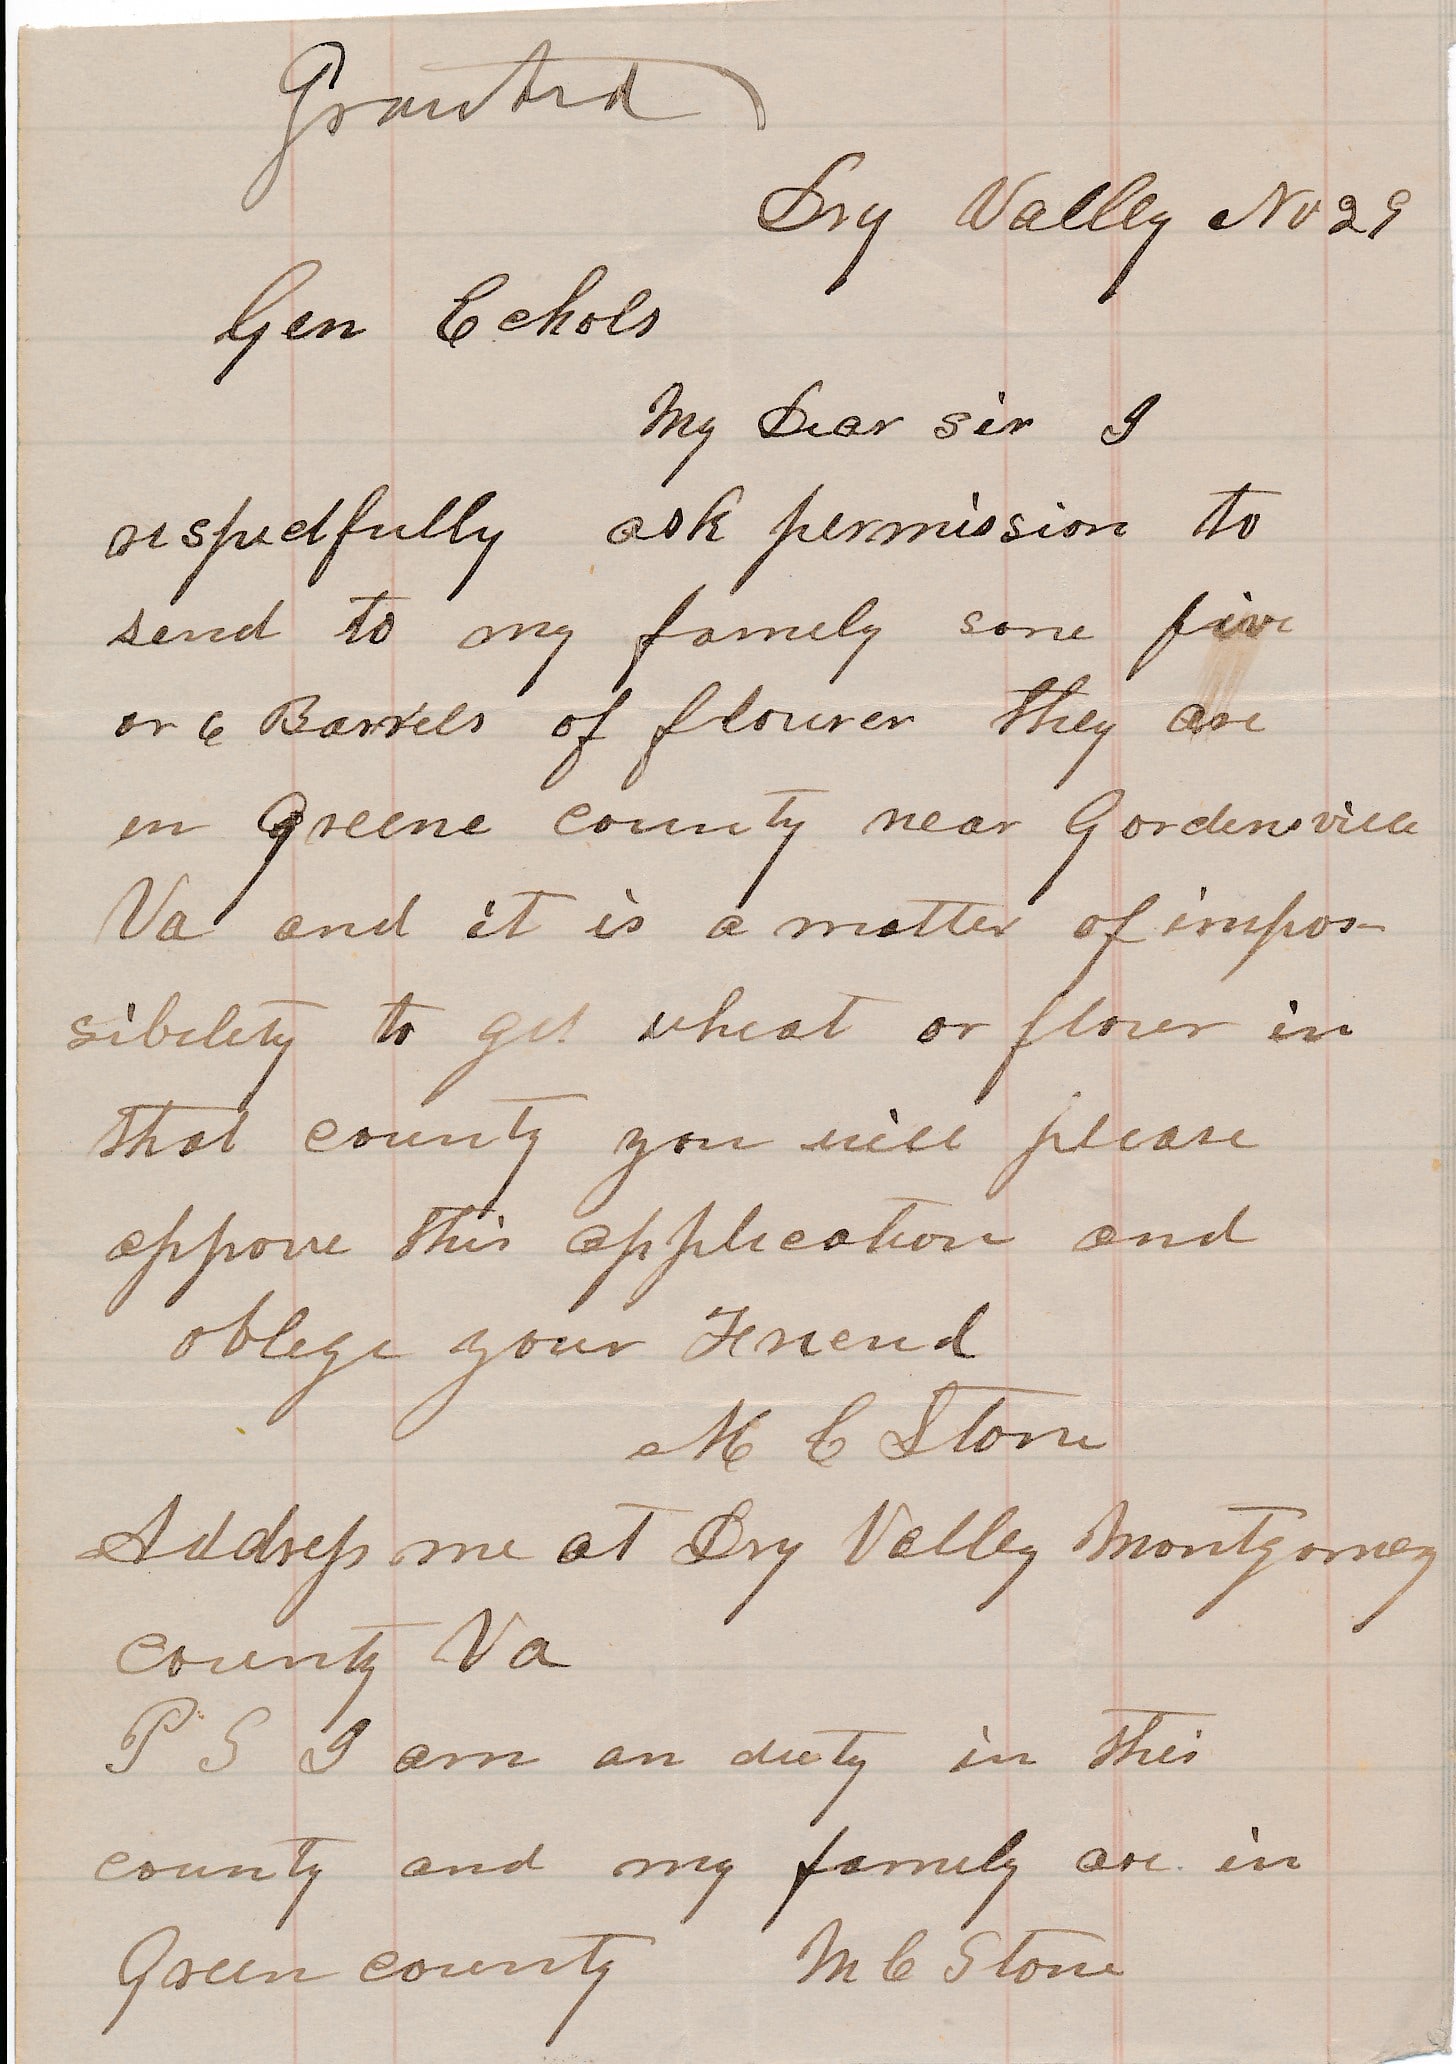 Granted
Dry Valley Nv 29
Gen Echols
My Dear sir I
respectfully ask permission to
send to my family some five
or 6 Barrels of flourer they are
in Greene county near Gordensville
Va and it is a matter of impos-
sibility to get wheat or flour in
that county you will please
appove this application and
oblege your Friend
M C Stone
Address me at Dry Valley Montgomey
county Va
P S I am on duty in this
county and my family are in
Green county M C Stone